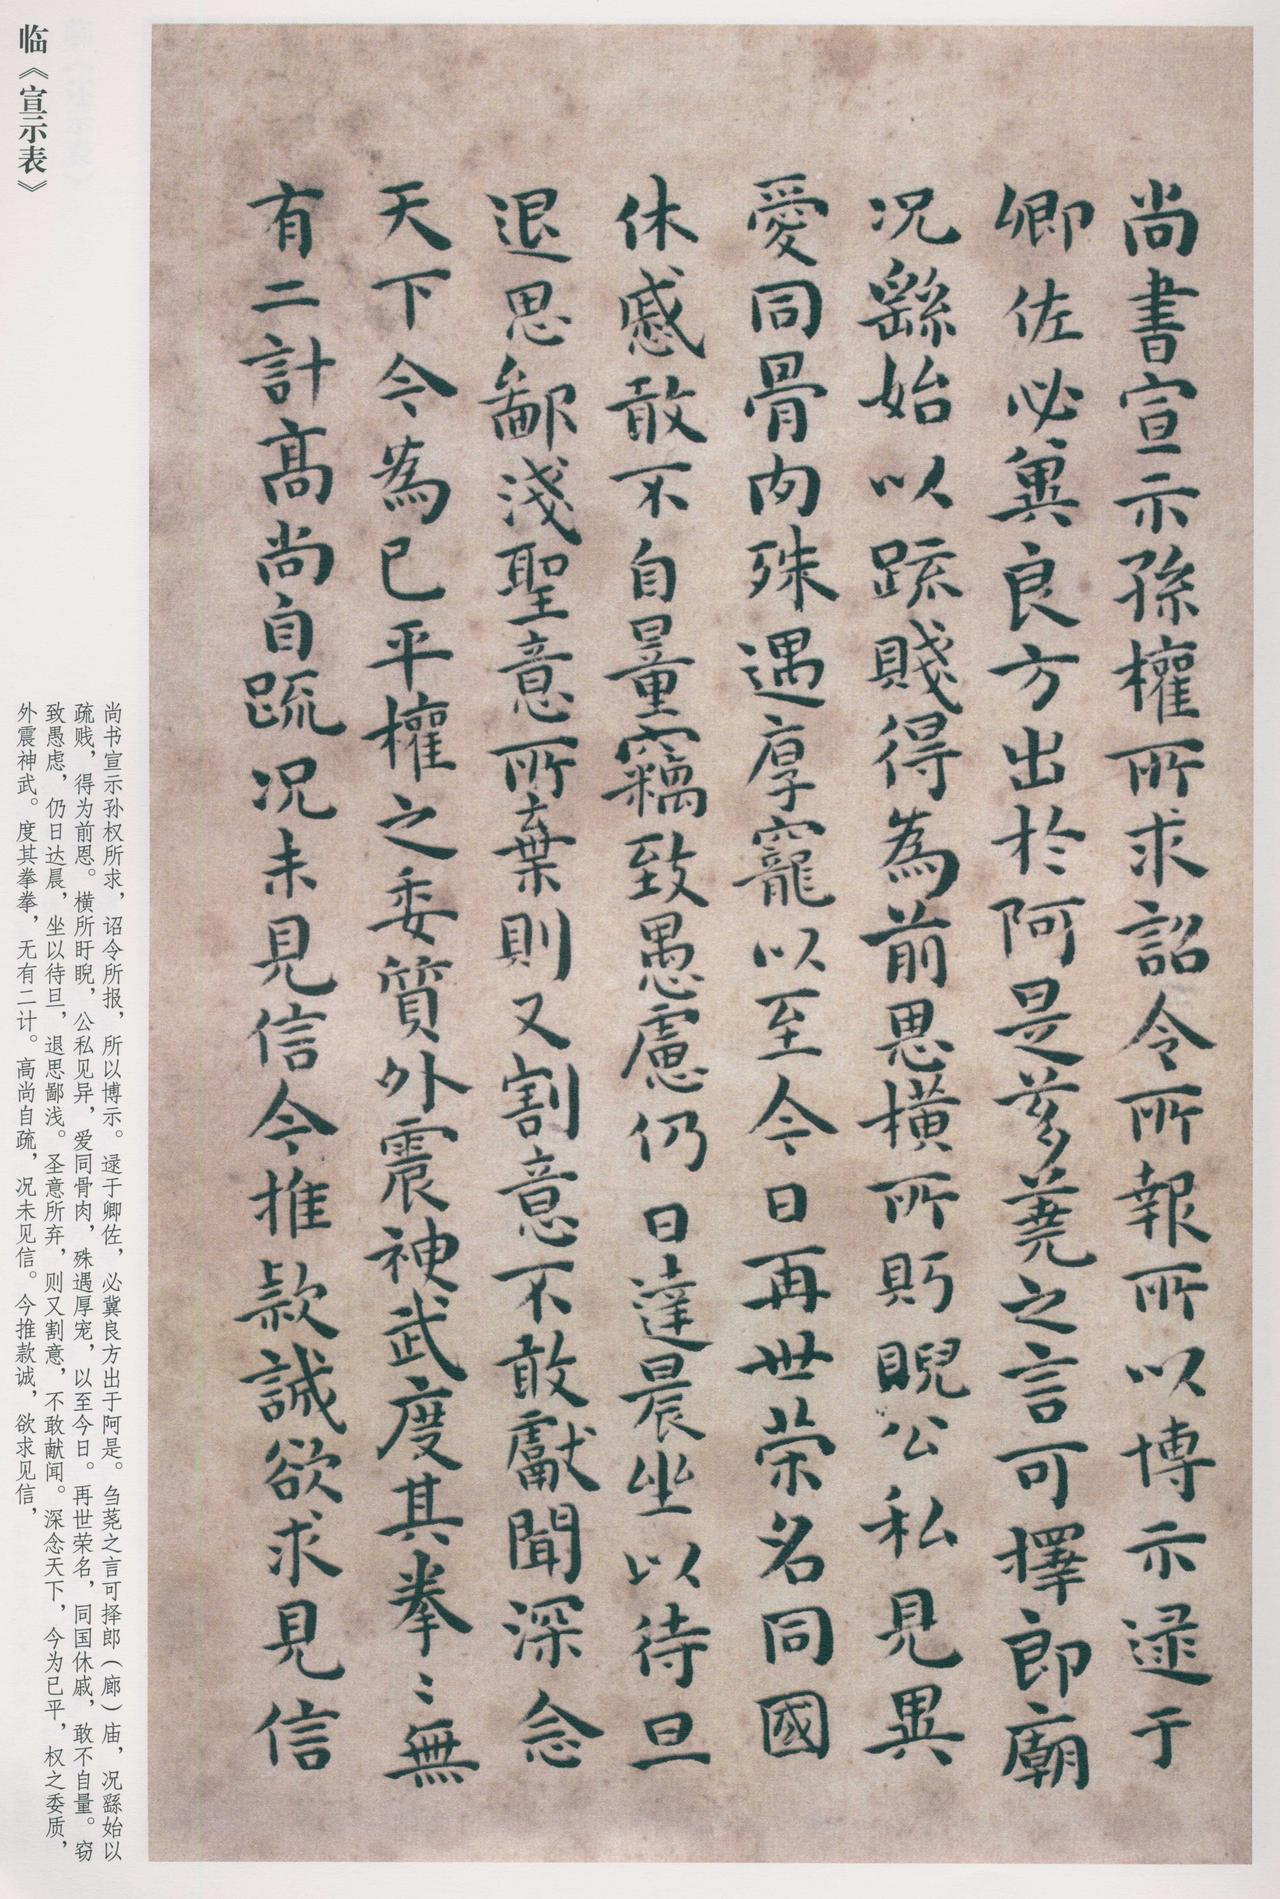 尚書宣示孫權所求詔令所報所以博示逯于
卿佐必冀良方出於阿是芻蕘之言可擇郎廟
況繇始以疏賤得為前恩橫所眄睨公私見異
愛同骨肉殊遇厚寵以至今日再世荣名同國
休慼敢不自量竊致愚慮仍日達晨坐以待旦
退思鄙淺聖意所棄則又割意不敢獻聞深念
天下今為已平權之委質外震神武度其拳〻無
有二計高尚自疏況未見信今推款誠欲求見信
临《宣示表》
尚书宣示孙权所求，诏令所报，所以博示。逯于卿佐，必冀良方出于阿是。刍荛之言可择郎（廊）庙，况繇始以
疏贱，得为前恩。横所盱睨，公私见异，爱同骨肉，殊遇厚宠，以至今日。再世荣名，同国休戚，敢不自量。窃
致愚虑，仍日达晨，坐以待旦，退思鄙浅。圣意所弃，则又割意，不敢献闻。深念天下，今为已平，权之委质，
外震神武。度其拳拳，无有二计。高尚自疏，况未见信。今推款诚，欲求见信，